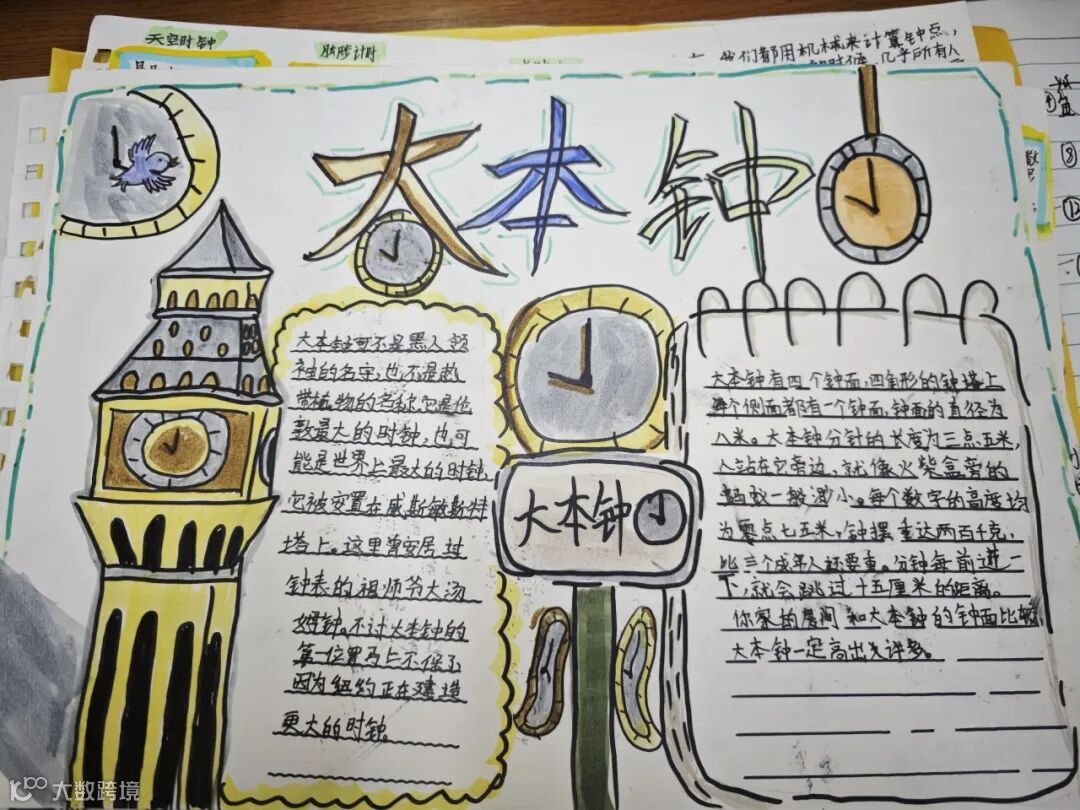 天空时钟
脉脉计时
我们都用机械来计算钟点,
几乎所有人
大本钟
大本钟可不是黑人领
袖的名字,也不是救
带植物的名称,它是伦
敦最大的时钟,也可
能是世界上最大的时钟,
它被安置在威斯敏斯特
塔上。这里曾安居过
钟表的祖师爷大汤
姆钟。不过大本钟的
第一位置马上不保了
因为纽约正在建造
更大的时钟。
大本钟
大本钟有四个钟面,四角形的钟塔上
每个侧面都有一个钟面,钟面的直径为
八米。大本钟分针的长度为三点五米,
人站在它旁边,就像火柴盒旁的
蚂蚁一般渺小。每个数字的高度均
为零点七五米,钟摆重达两百千克,
比三个成年人还要重。分针每前进一
下,就会跳过十五厘米的距离。
你家的房间和大本钟的钟面比较
大本钟一定高出先许多。
大数跨境